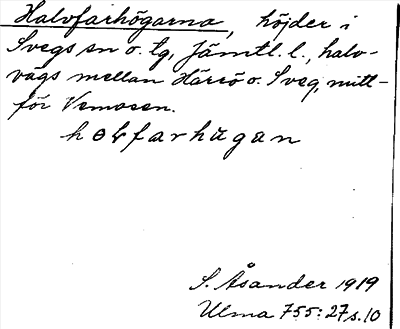 Halvfarhögarna, höjder i
Svegs sn o. tg, Jämtl. l., halv-
vägs mellan Härrö o. Sveg, mitt-
för Vemosen.
S. Åsander 1919
Ulma 755:27 s. 10